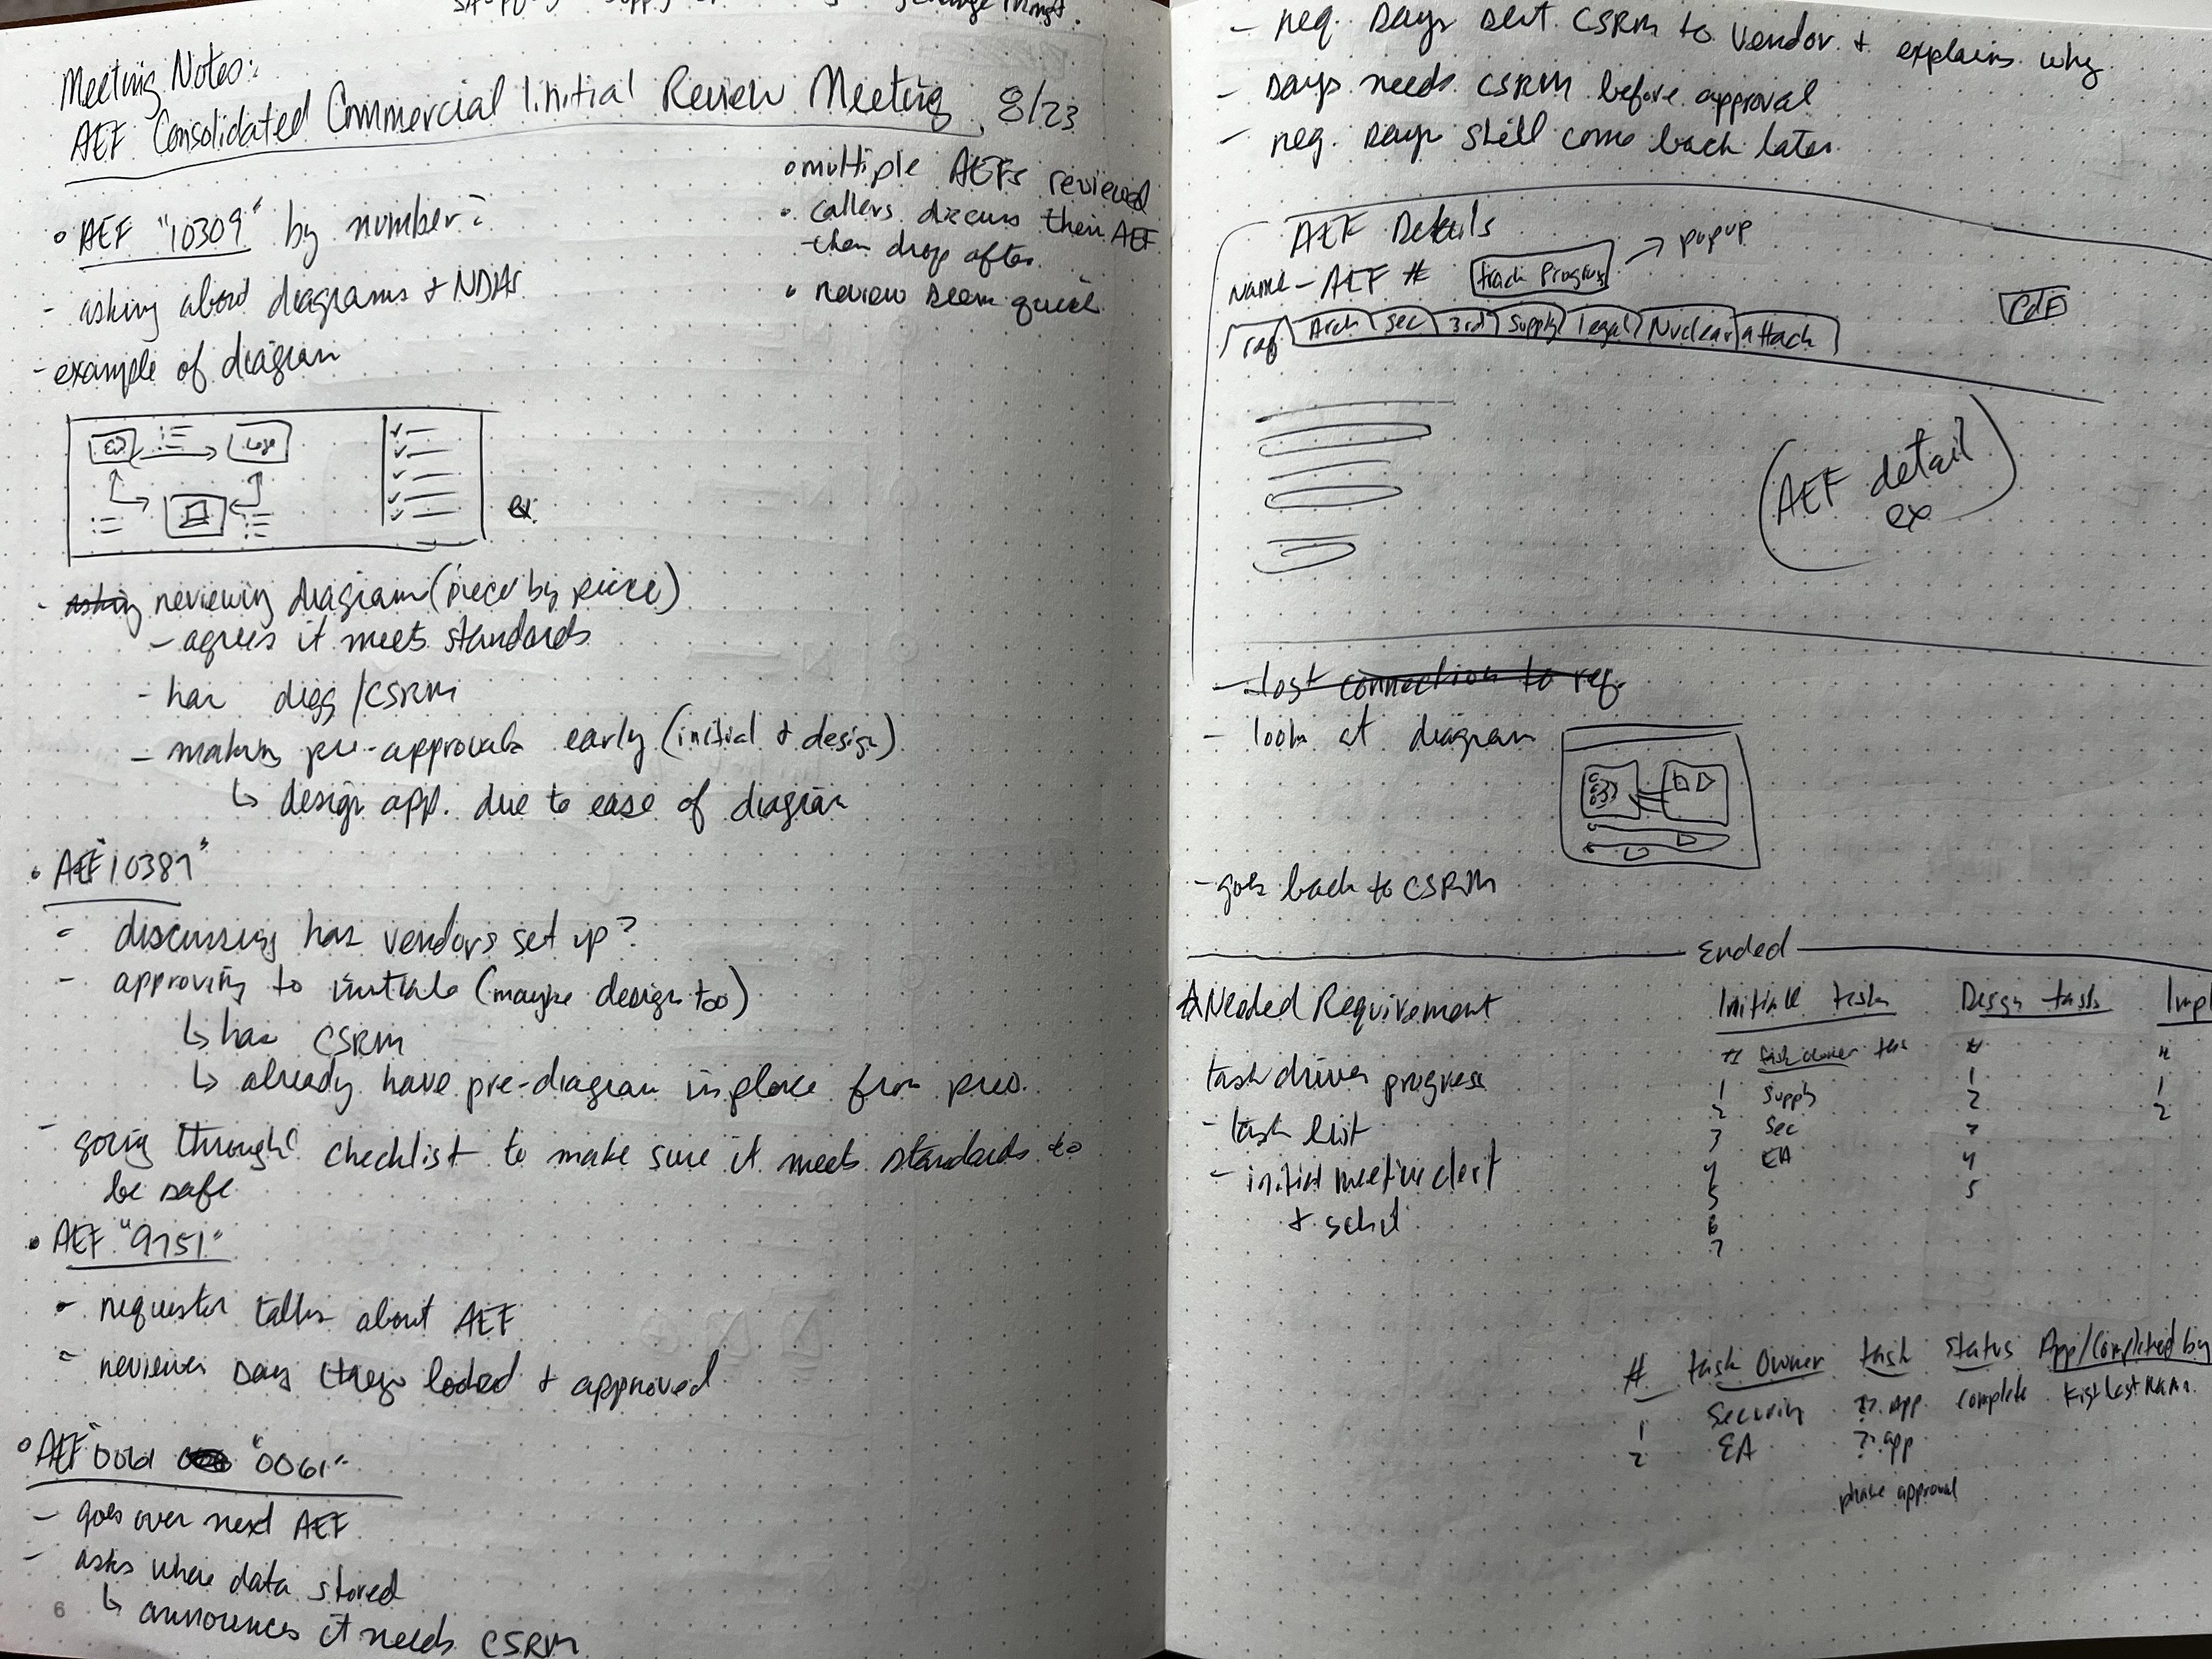 Meeting Notes:
AEF Consolidated Commercial Initial Review Meeting, 8/23
o multiple AEFs reviewed
• callers discuss their AEF
then drop after
• review seem quick
o AEF "10309" by number:
- asking about diagrams + NDAs
- example of diagram
ex:
- asking reviewing diagram (piece by piece)
- agrees it meets standards
- has digg/CSRM
- making pre-approvals early (initial + design)
↳ design app. due to ease of diagram
• AEF "10389"
- discussing has vendors set up?
- approving to initials (maybe design too)
↳ has CSRM
↳ already have pre-diagram in place from prev.
- going through checklist to make sure it meets standards to
be safe
• AEF "9751"
- requestor talks about AEF
- reviewer says they looked + approved
o AEF "0061 "0061"
- goes over next AEF
- asks where data stored
↳ announces it needs CSRM
6
- req. says sent CSRM to vendor + explains why
- says needs CSRM before approval
- req. says still come back later
AEF Details
Name - AEF # track Progress → popup
req Arch sec 3rd Supply legal Nuclear attach
Pdf
AEF detail
ex
- lost connection to req.
- look at diagram
- goes back to CSRM
Ended
Needed Requirement
task driven progress
- task list
- initial meeting alert
+ sched
Initial tasks Design tasks Impl
# task owner task # #
1 Supply 1 1
2 Sec 2 2
3 EA 3
4 4
5 5
6
7
# task Owner task status App/Completed by
1 Security ??. App complete First last Name
2 EA ??. app
phase approval